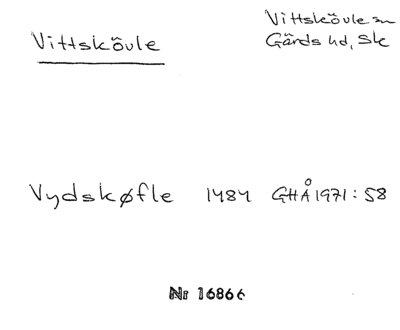 Vittskövle
Vittskövle sn
Gärds hd, Sk
Vydskøfle 1484 GHÅ 1971: 58
Nr 16866